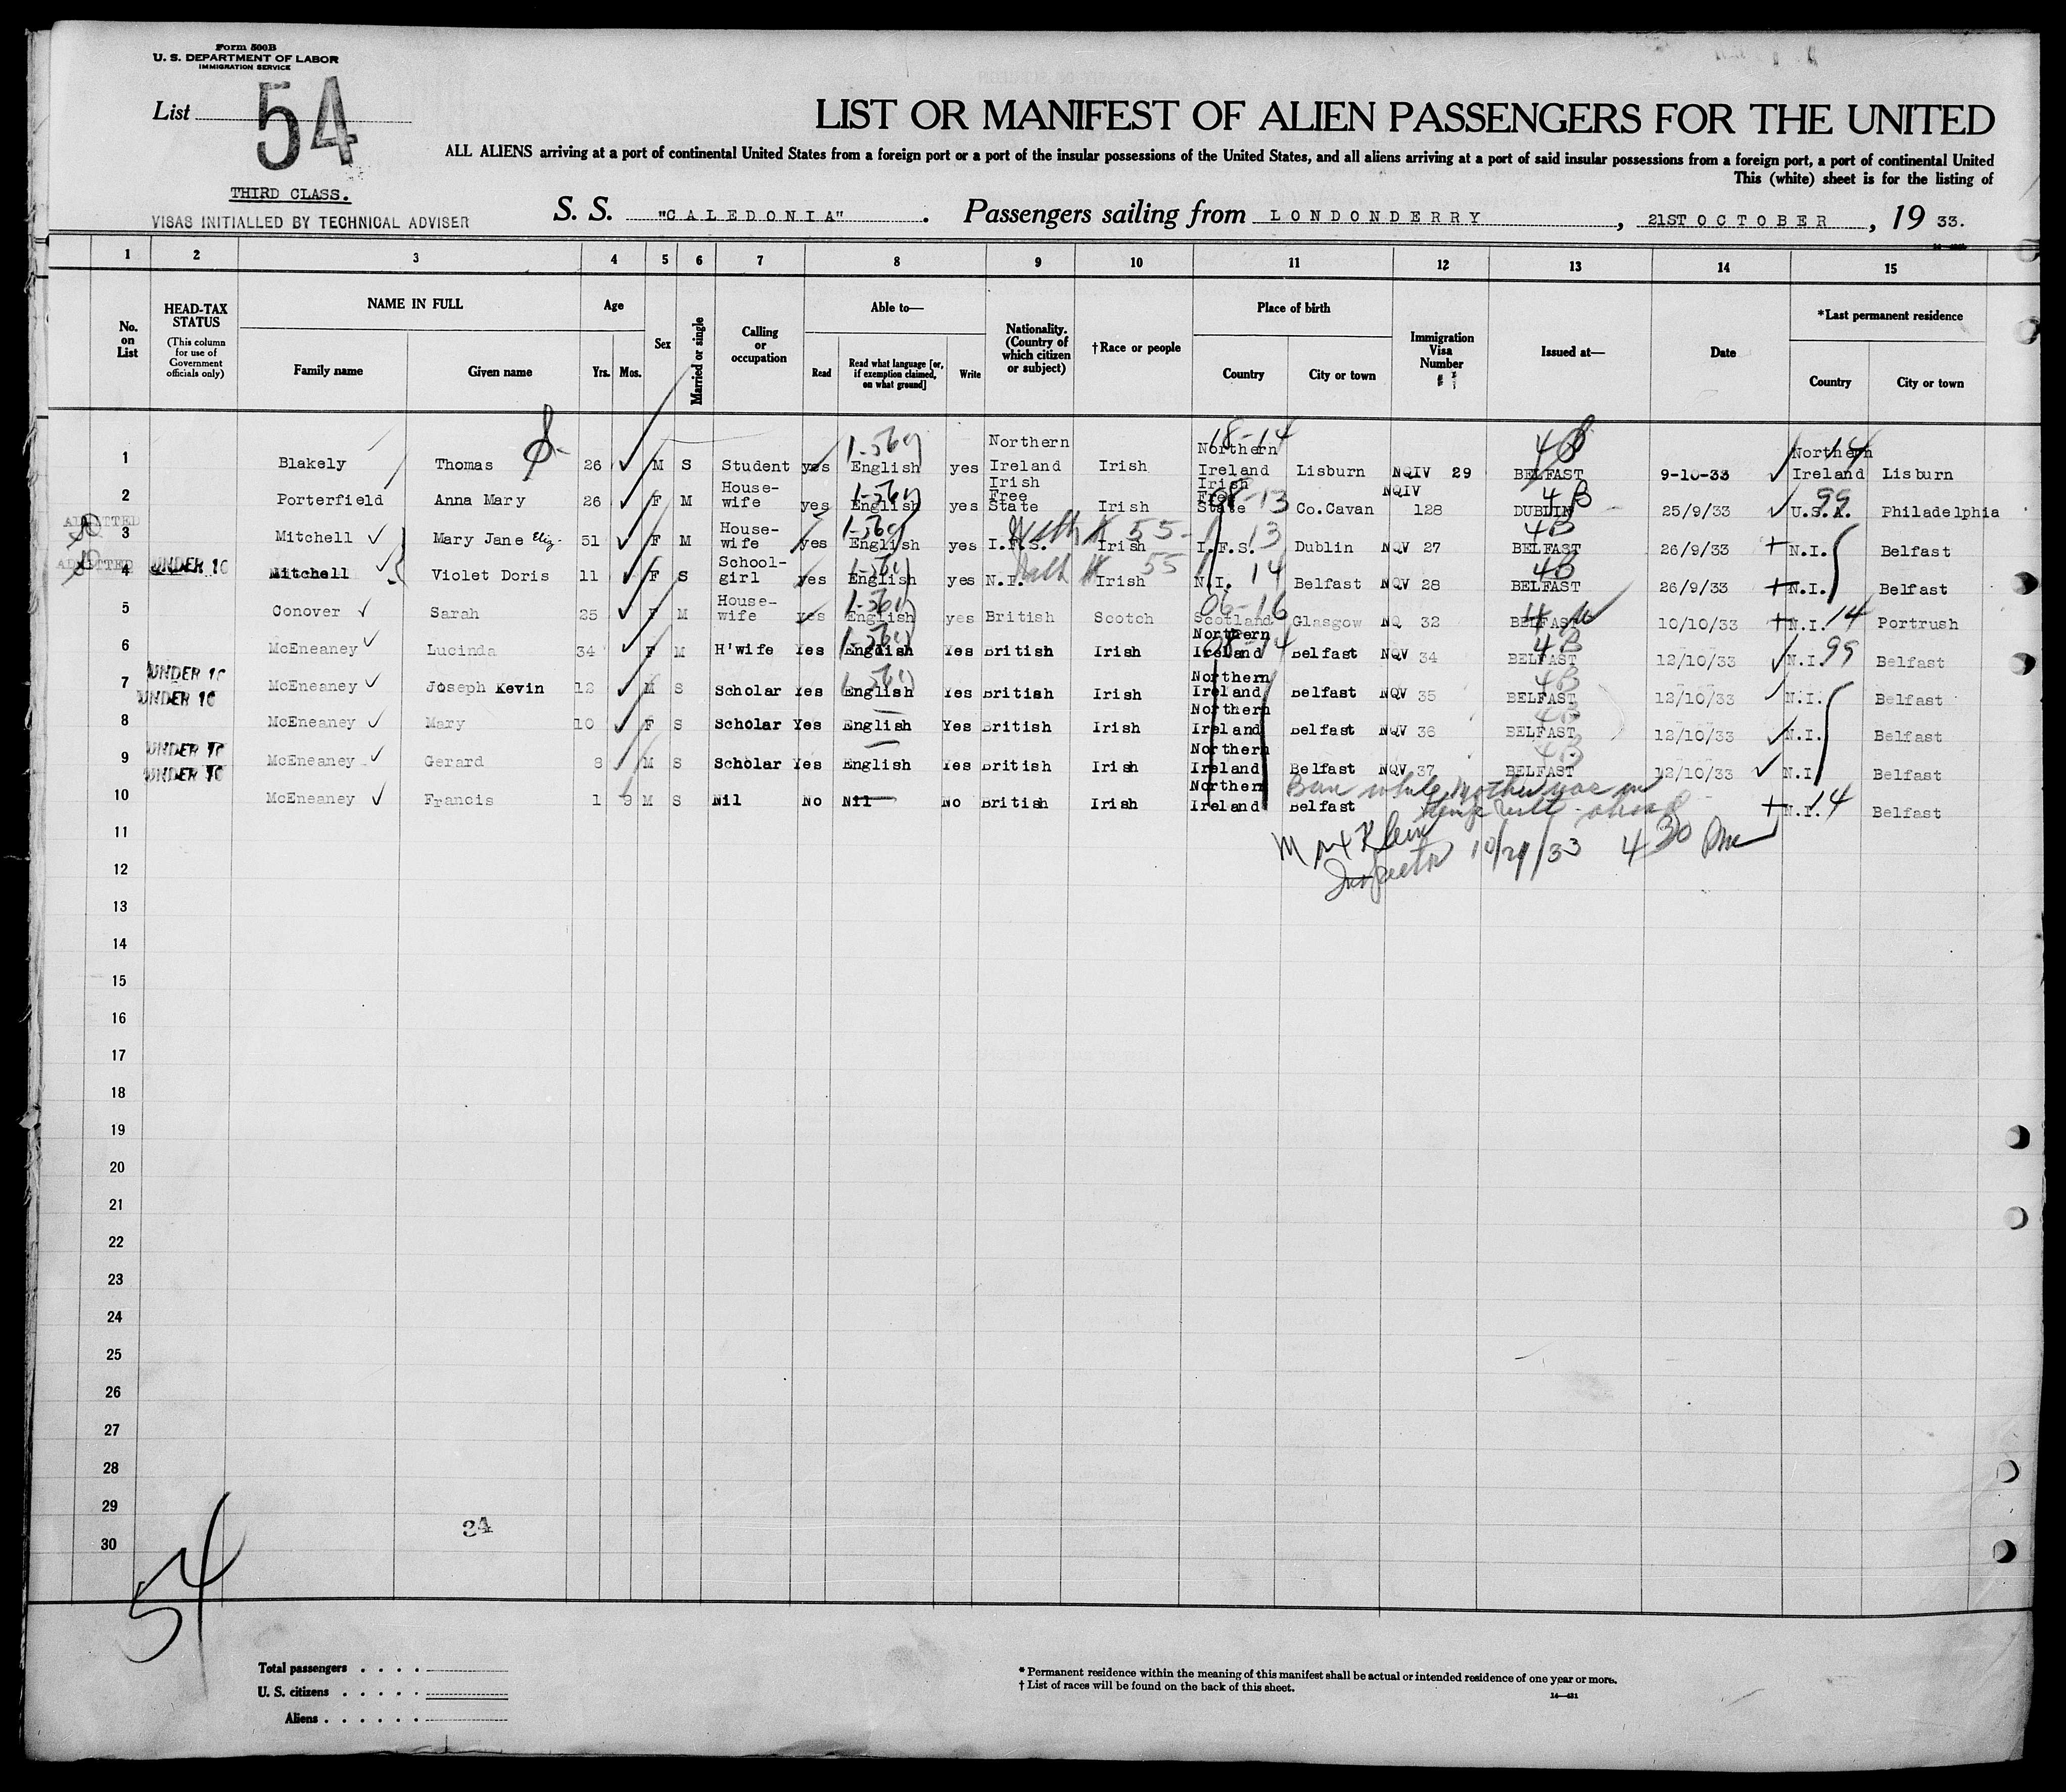 Form 500B
U. S. DEPARTMENT OF LABOR
IMMIGRATION SERVICE
List 54
LIST OR MANIFEST OF ALIEN PASSENGERS FOR THE UNITED
ALL ALIENS arriving at a port of continental United States from a foreign port or a port of the insular possessions of the United States, and all aliens arriving at a port of said insular possessions from a foreign port, a port of continental United
This (white) sheet is for the listing of
THIRD CLASS.
VISAS INITIALLED BY TECHNICAL ADVISER
S. S. "CALEDONIA". Passengers sailing from LONDONDERRY, 21ST OCTOBER, 19 33.
1 2 3 4 5 6 7 8 9 10 11 12 13 14 15
No. on List
HEAD-TAX STATUS
(This column for use of Government officials only)
NAME IN FULL
Family name Given name
Age
Yrs. Mos.
Sex
Married or single
Calling or occupation
Able to—
Read Read what language [or, if exemption claimed, on what ground] Write
Nationality. (Country of which citizen or subject)
†Race or people
Place of birth
Country City or town
Immigration Visa Number
Issued at—
Date
*Last permanent residence
Country City or town
1 Blakely Thomas 26 M S Student yes English yes Northern Ireland Irish Northern Ireland Lisburn NQIV 29 BELFAST 9-10-33 Northern Ireland Lisburn
1-569 18-14 4B 14
2 Porterfield Anna Mary 26 F M House-wife yes English yes Irish Free State Irish Irish Free State Co.Cavan NQIV 128 DUBLIN 25/9/33 U.S.A. Philadelphia
1-569 08-13 4B 99
ADMITTED
3 Mitchell Mary Jane Eliz. 51 F M House-wife yes English yes I.F.S. Irish I.F.S. Dublin NQV 27 BELFAST 26/9/33 N.I. Belfast
1-569 55 13 4B
ADMITTED
4 UNDER 16 Mitchell Violet Doris 11 F S School-girl yes English yes N.I. Irish N.I. Belfast NQV 28 BELFAST 26/9/33 N.I. Belfast
1-569 55 14 4B
5 Conover Sarah 25 F M House-wife yes English yes British Scotch Scotland Glasgow NQ 32 BELFAST 10/10/33 N.I. Portrush
1-569 06-16 14
6 McEneaney Lucinda 34 F M H'wife Yes English Yes British Irish Northern Ireland Belfast NQV 34 BELFAST 12/10/33 N.I. Belfast
1-569 08-14 4B 99
UNDER 16
7 McEneaney Joseph Kevin 12 M S Scholar Yes English Yes British Irish Northern Ireland Belfast NQV 35 BELFAST 12/10/33 N.I. Belfast
1-569 4B
UNDER 16
8 McEneaney Mary 10 F S Scholar Yes English Yes British Irish Northern Ireland Belfast NQV 36 BELFAST 12/10/33 N.I. Belfast
4B
UNDER 16
9 McEneaney Gerard 8 M S Scholar Yes English Yes British Irish Northern Ireland Belfast NQV 37 BELFAST 12/10/33 N.I. Belfast
4B
UNDER 16
10 McEneaney Francis 1 9 M S Nil No Nil No British Irish Northern Ireland Belfast N.I. Belfast
Born while mother was on
14
Max Klein
Inspector 10/29/33 4 30 PM
11
12
13
14
15
16
17
18
19
20
21
22
23
24
25
26
27
28
29
30
34
54
Total passengers . . . .
U. S. citizens . . . . .
Aliens . . . . . .
* Permanent residence within the meaning of this manifest shall be actual or intended residence of one year or more.
† List of races will be found on the back of this sheet.
14—431